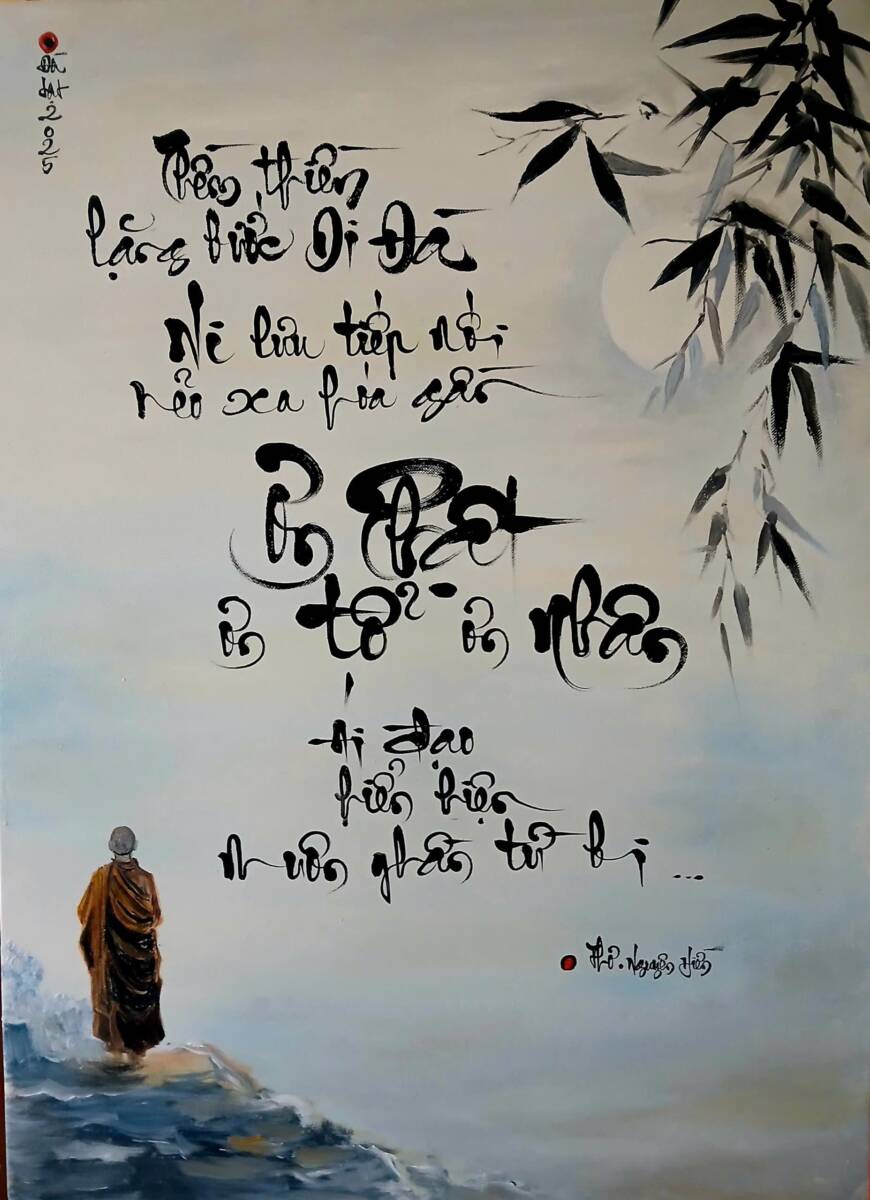 Đà
Lạt
2
0
2
5
Thềm thiền
lặng bước Di Đà
Ni lưu tiếp nối
nẻo xa hóa gần
Ơn Phật
ơn tổ - ơn Nhân
Ái đạo
hiển hiện
muôn phần từ bi ...
Thơ. Nguyên Hiền